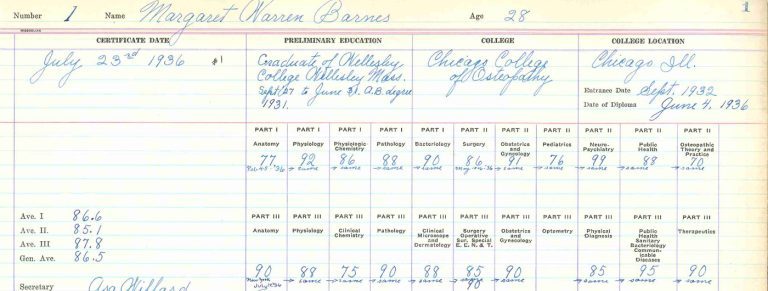 Number 1 Name Margaret Warren Barnes Age 28
1
CERTIFICATE DATE PRELIMINARY EDUCATION COLLEGE COLLEGE LOCATION
July 23rd 1936 #1 Graduate of Wellesley Chicago College Chicago Ill.
College Wellesley Mass. of Osteopathy
Sept/27 to June 31. A.B. degree Entrance Date Sept. 1932
1931. Date of Diploma June 4, 1936
PART I PART I PART I PART I PART I PART II PART II PART II PART II PART II PART II
Anatomy Physiology Physiologic Chemistry Pathology Bacteriology Surgery Obstetrics and Gynecology Pediatrics Neuro-Psychiatry Public Health Osteopathic Theory and Practice
77 92 86 88 90 86 91 76 99 88 70
same same same same same same same same same
Ave. I 86.6
Ave. II. 85.1
Ave. III 87.8
Gen. Ave. 86.5
PART III PART III PART III PART III PART III PART III PART III PART III PART III PART III PART III
Anatomy Physiology Clinical Chemistry Pathology Clinical Microscope and Dermatology Surgery Operative Sur. Special E. E. N. & T. Obstetrics and Gynaecology Optometry Physical Diagnosis Public Health Sanitary Bacteriology Communicable Diseases Therapeutics
90 88 75 90 88 85 90 85 95 90
same same same same same same same same same
98
Secretary Asa Willard